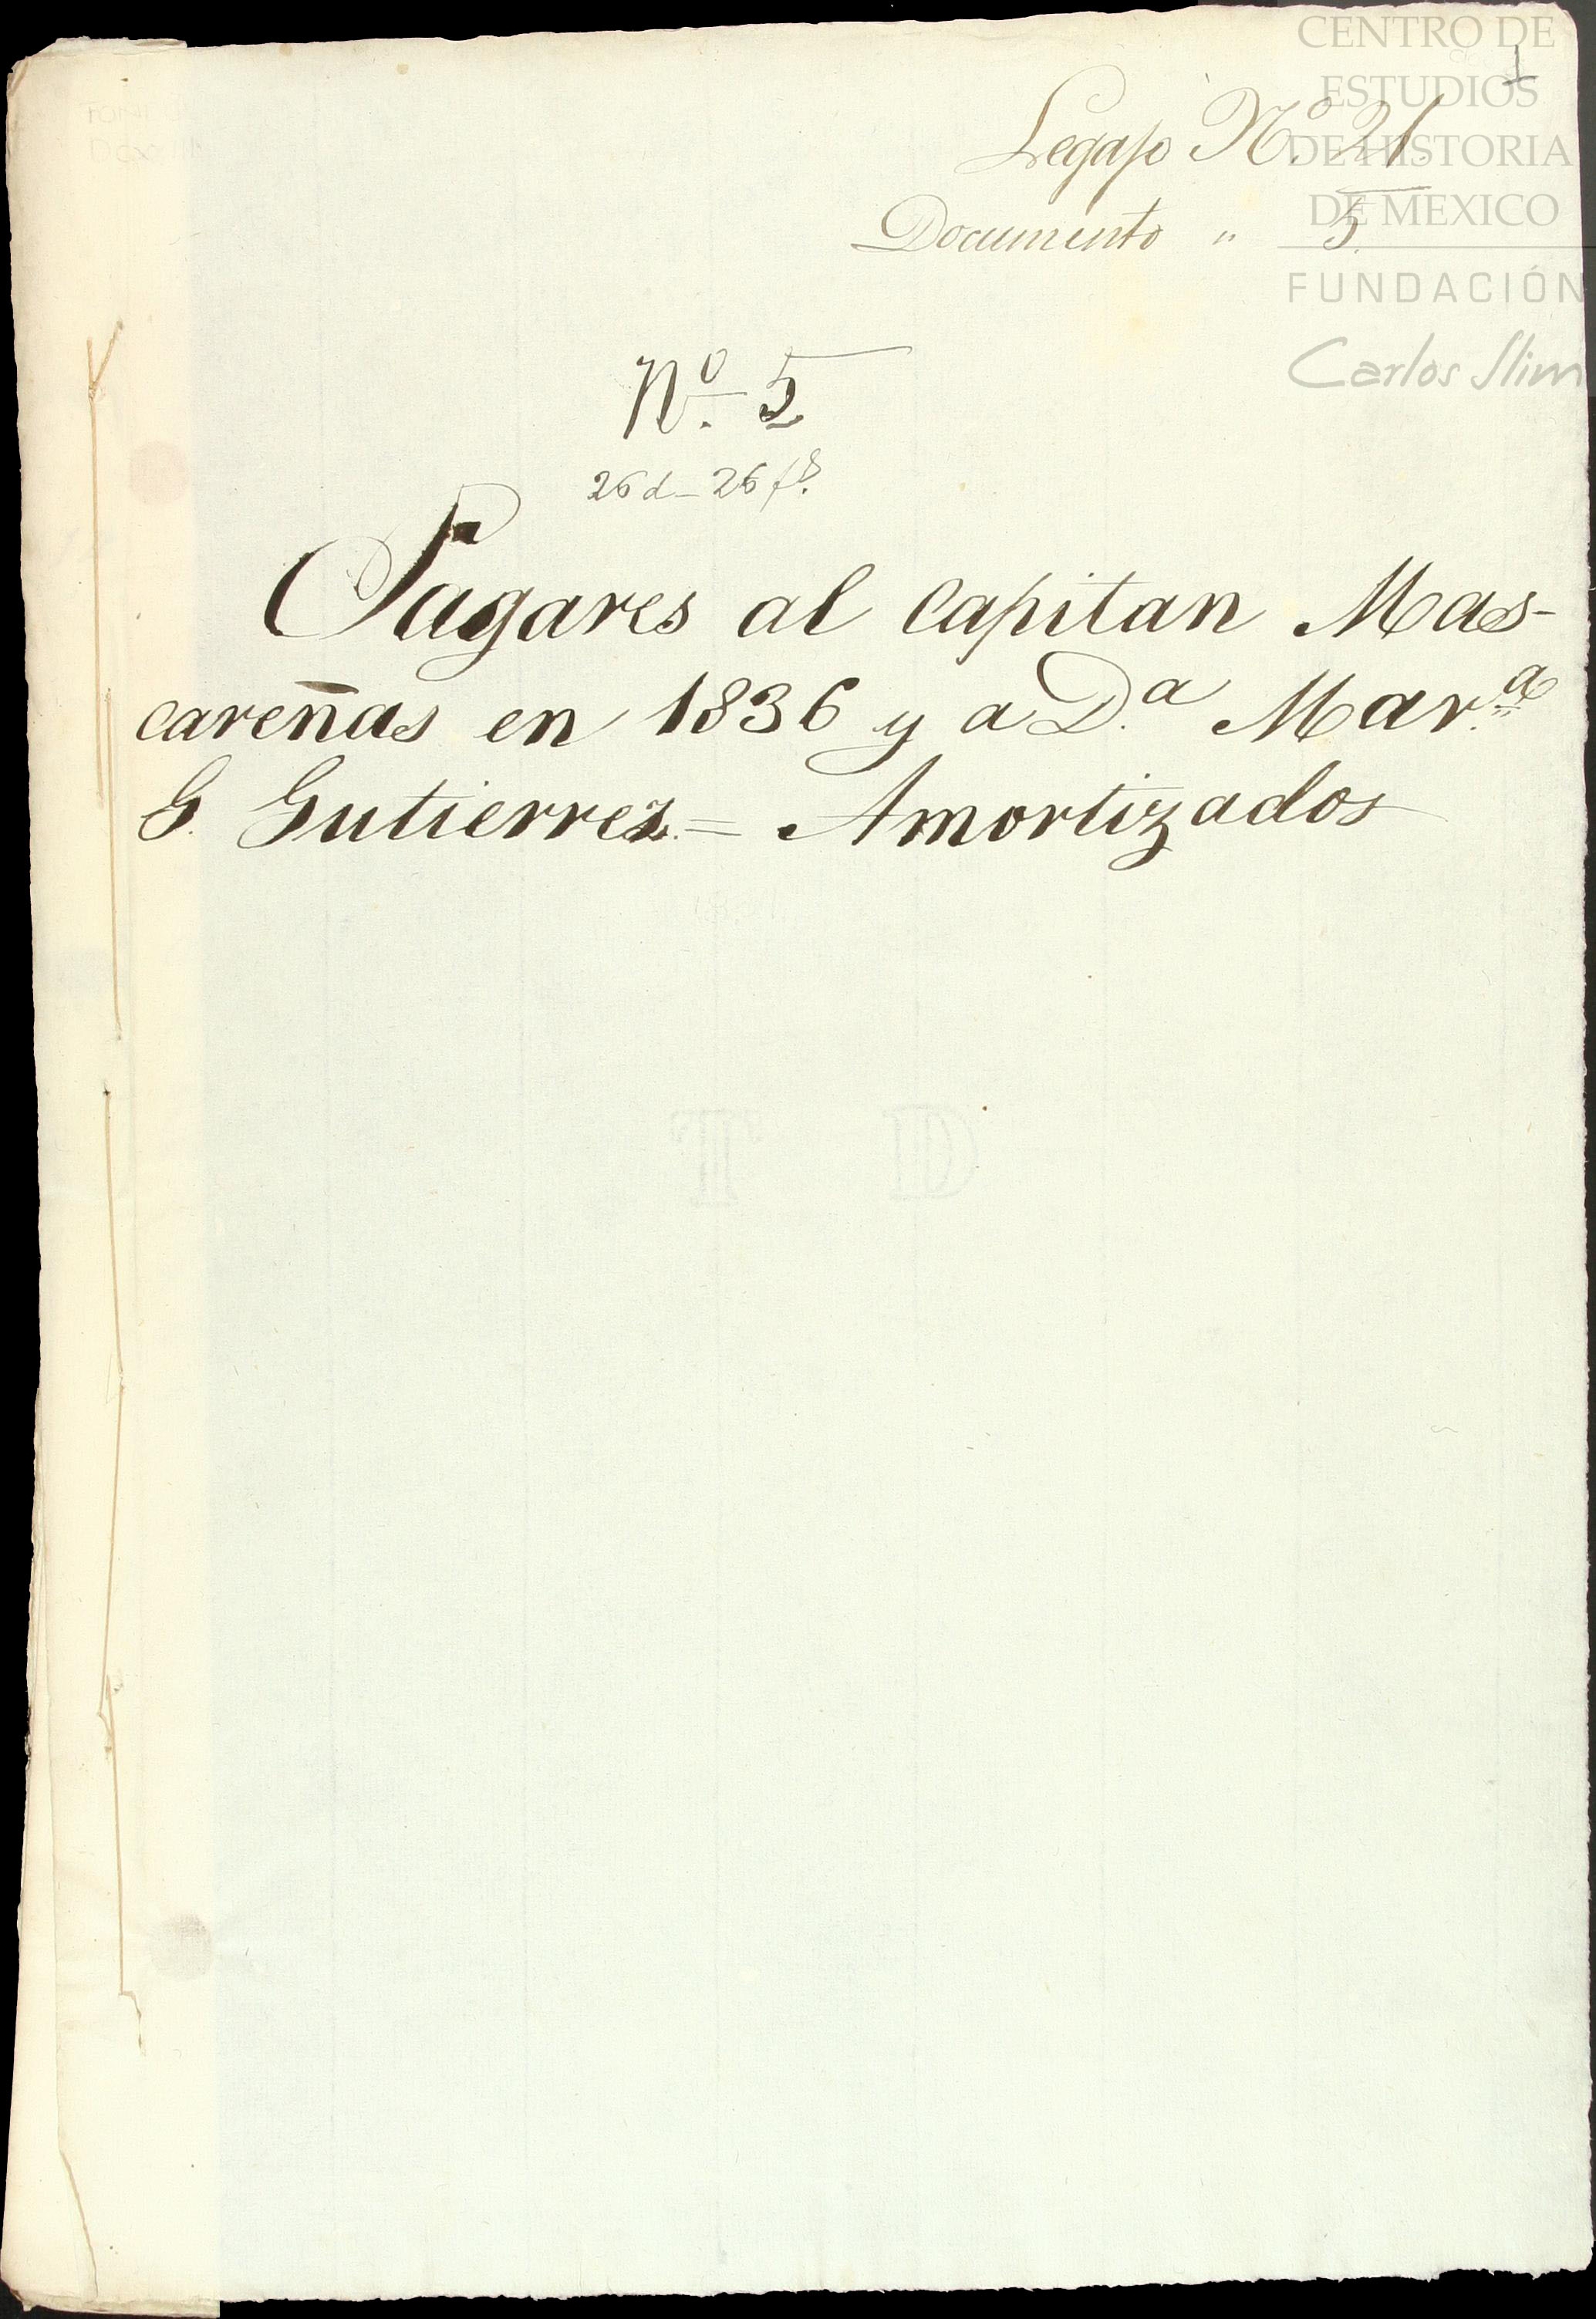 CENTRO DE
ESTUDIOS
DE HISTORIA
DE MEXICO
FUNDACIÓN
Carlos Slim
1
Legajo Nº. 21.
Documento " 5.
Nº. 5
26 d - 26 fs.
Pagares al Capitan Mas-
careñas en 1836 y a D.ª Mar.ª
G. Gutierrez = Amortizados